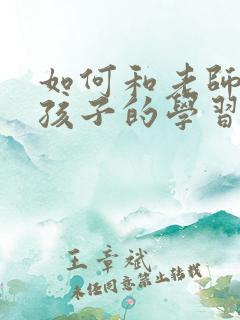 如何和老師
孩子的學習
王章斌
未經同意禁止轉載